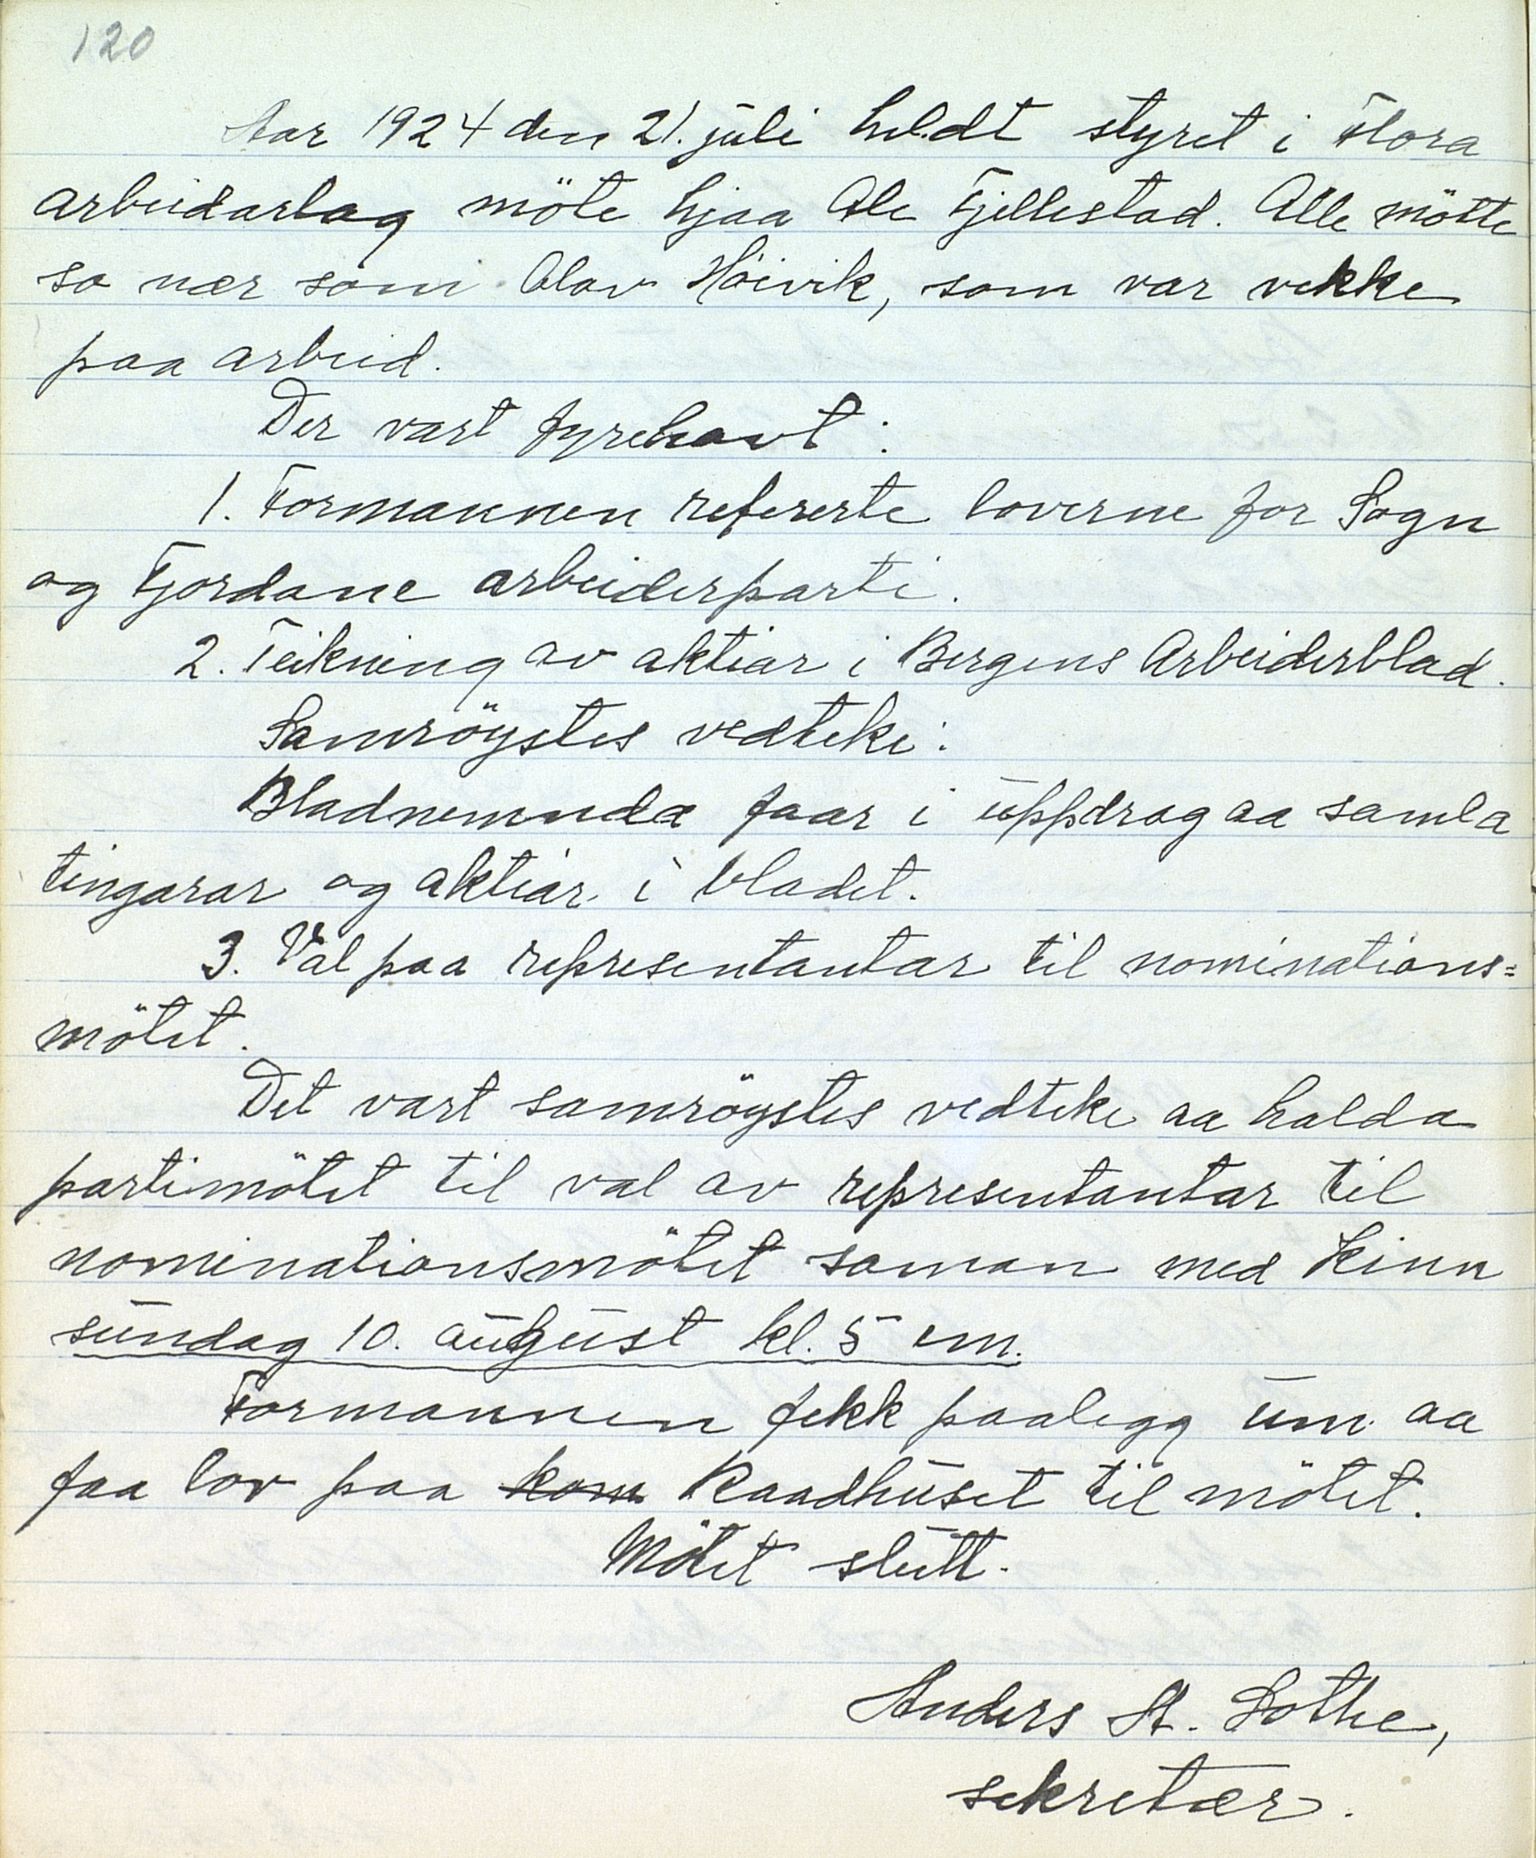 120
Aar 1924 den 21. juli heldt styret i Flora
arbeidarlag möte hjaa Ole Fjellestad. Alle mötte
so nær som Olav Höivik, som var vekke
paa arbeid.
Der vart fyrehavt:
1. Formannen refererte loverne for Sogn
og Fjordane arbeiderparti.
2. Teikning av aktiar i Bergens Arbeiderblad.
Samröystes vedteke:
Bladnemnda faar i uppdrag aa samla
tingarar og aktiar i bladet.
3. Val paa representantar til nominations=
mötet.
Det vart samröystes vedteke aa halda
partimötet til val av representantar til
nominationsmötet saman med Kinn
sundag 10. august kl. 5 em.
Formannen fekk paalegg um aa
faa lov paa kom Raadhuset til mötet.
Mötet slutt.
Anders St. Lothe,
sekretær.